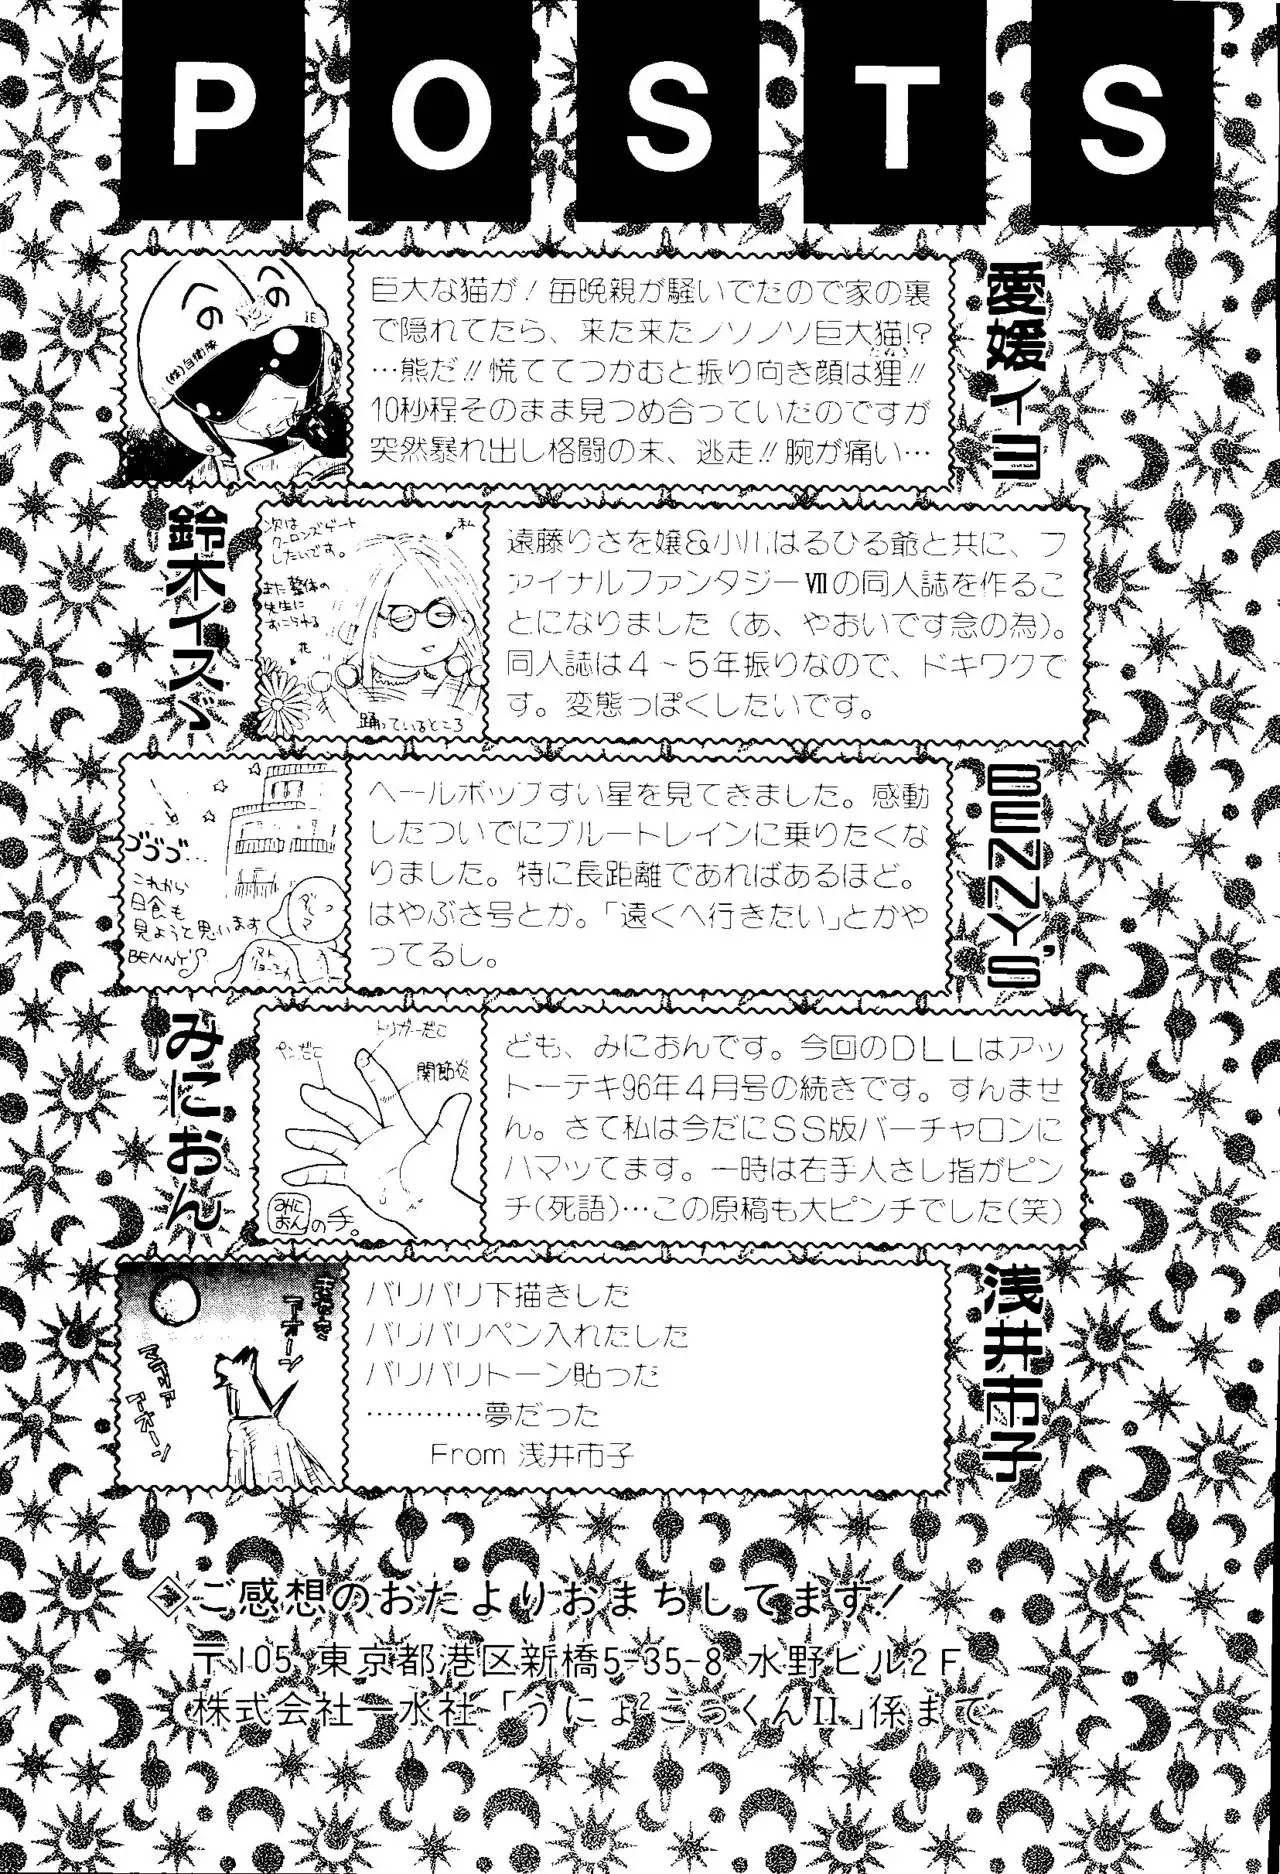 POSTS
愛媛イヨ
巨大な猫が!毎晩親が騒いでたので家の裏
で隠れてたら、来た来たノソノソ巨大猫!?
…熊だ!!慌ててつかむと振り向き顔は狸!!
たぬき
10秒程そのまま見つめ合っていたのですが
突然暴れ出し格闘の末、逃走!!腕が痛い…
くの
くの
(株)自衛隊
鈴木イスゞ
次は
クーロンズゲート
したいです。
私
また整体の
先生に
おこられる
花
踊っているところ
遠藤りさを嬢&小川はるひる爺と共に、フ
ァイナルファンタジーⅦの同人誌を作るこ
とになりました(あ、やおいです念の為)。
同人誌は4~5年振りなので、ドキワクで
す。変態っぽくしたいです。
BENNY'S
ゴゴゴ…
これから
日食も
見ようと思います
BENNY'S
ヘールボップすい星を見てきました。感動
したついでにブルートレインに乗りたくな
りました。特に長距離であればあるほど。
はやぶさ号とか。「遠くへ行きたい」とかや
ってるし。
みにおん
トリガーだこ
ペンだこ
関節炎
みに
おん
の手。
ども、みにおんです。今回のDLLはアッ
トーテキ96年4月号の続きです。すんませ
ん。さて私は今だにSS版バーチャロンに
ハマッてます。一時は右手人さし指がピン
チ(死語)…この原稿も大ピンチでした(笑)
浅井市子
バリバリ下描きした
バリバリペン入れたした
バリバリトーン貼った
…………夢だった
From 浅井市子
ご感想のおたよりおまちしてます!
〒105 東京都港区新橋5-35-8 水野ビル2F
株式会社一水社「うにょ²ごっくんII」係まで